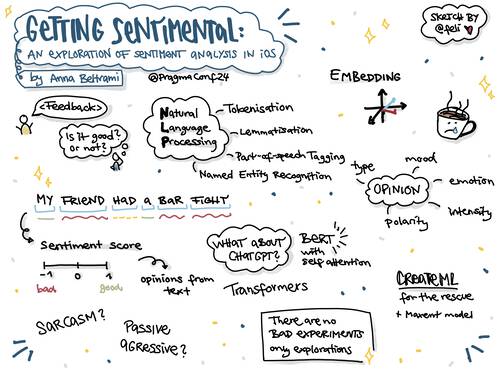 GETTING SENTIMENTAL:
AN EXPLORATION OF SENTIMENT ANALYSIS IN iOS
by Anna Beltrami
@PragmaConf24
SKETCH BY
@feli
<Feedback>
Is it good?
or not?
Natural
Language
Processing
Tokenisation
Lemmatisation
Part-of-speech Tagging
Named Entity Recognition
EMBEDDING
OPINION
type
mood
emotion
intensity
polarity
MY FRIEND HAD A BAR FIGHT
Sentiment score
-1 0 1
bad good
opinions from
text
WHAT ABOUT
CHATGPT?
BERT
with
self attention
Transformers
CREATE ML
for the rescue
+ Maxent model
SARCASM?
PASSIVE
AGRESSIVE?
There are no
BAD EXPERIMENTS
only explorations